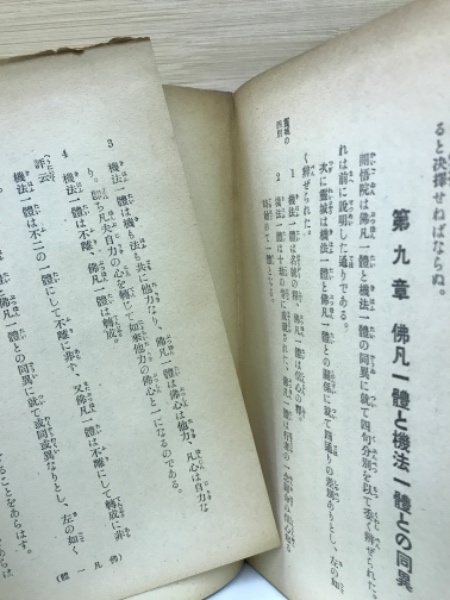 ると決擇せねばならぬ。
第九章 佛凡一體と機法一體との同異
開悟院は佛凡一體と機法一體の同異に就て四句分別を以て委く辨ぜられた。
れは前に說明した通りである。
次に靈暀は機法一體と佛凡一體との關係に就て四通りの差別ありとし、左の如
く辨ぜられた。
1 機法一體は名號の釋、佛凡一體は信心の釋。
2 機法一體は十劫の昔に成就された、佛凡一體は行者の一念歸命の信心發る
時始めて一體となる。
3 機法一體は機も法も共に他力なり、佛凡一體は佛心は他力、凡心は自力な
り。卽ち凡夫自力の心を轉じて如來他力の佛心と一になるのである。
4 機法一體は不離、佛凡一體は轉成。
評云
機法一體は不二の一體にして不離に非ず、又佛凡一體は不離にして轉成に非
機法一體佛凡一體の同異に就て或同或異なりとし、左の如く
ることをあらはす。
(佛凡一體)